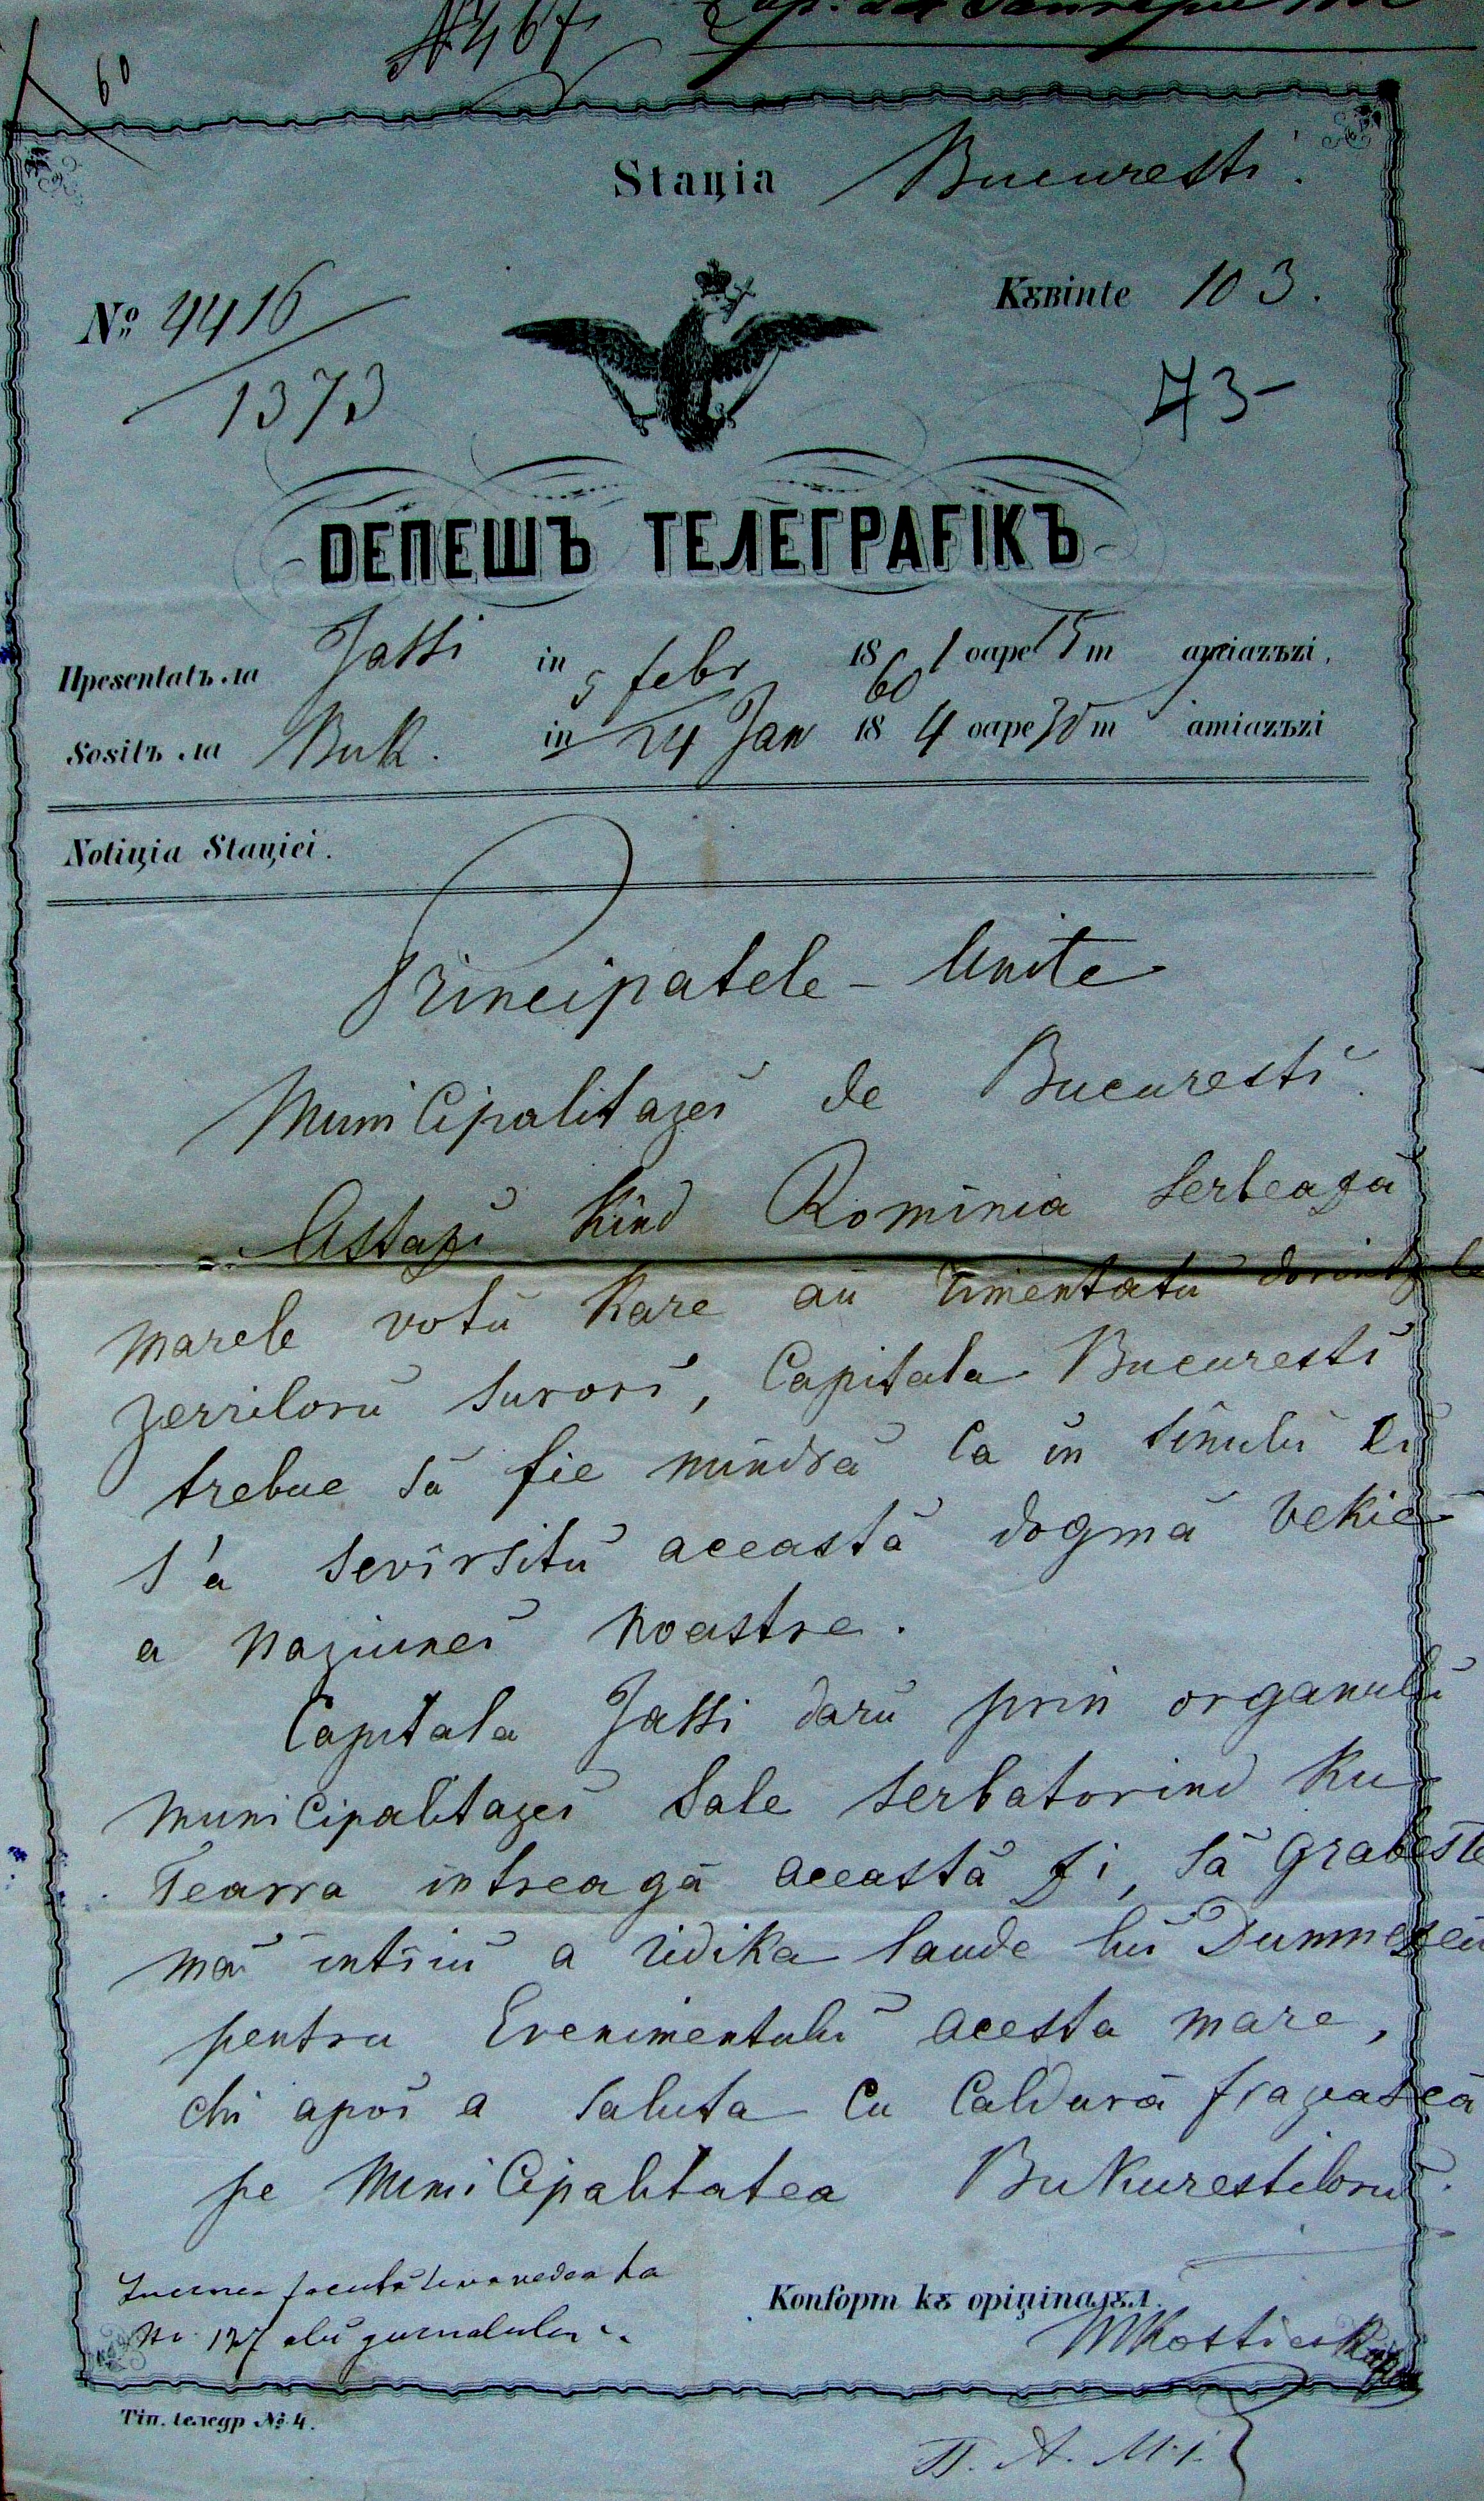 № 467
60
Staціa Bucuresti.
№ 4416 Kȣвinte 103.
1373 73-
DЕПЕШЪ ТЕЛЕГРАFIKЪ
Пресentatъ ла Jassi in 5 febr 18 60 1 оаре 15 m amiazъzi,
Sositъ ла Buk. in 24 Jan 18 4 оаре 30 m amiazъzi
Notiціa Staціei.
Principatele - Unite
MuniCipalitazeĭ de Bucurestĭ.
Astazĭ Kînd Romînia Serbeazâ
marele votŭ Kare aŭ cimentatŭ
zerrilorŭ Surorĭ, Capitala Bucurestĭ
trebue sâ fie mîndrâ Ca în Sînulŭ Eĭ
s'a Sevîrsitŭ aceastâ dogmâ vekie
a naziuneĭ noastre.
Capitala Jassi darŭ prin organulŭ
muniCipalitazeĭ Sale Serbatorind Ku
Tearra întreagâ aceastâ zi, Sâ Grabeste
maĭ întîiŭ a ridika laude luĭ Dumnezeŭ
pentru Evenimentulŭ acesta mare,
chi apoĭ a Saluta Cu Caldurâ frazascâ
pe MuniCipalitatea BuKurestilorŭ.
No. 127 alŭ jurnalului
Konfopm kȣ opiцinaлȣл.
MKostiesk
Tiп. teлeгp №. 4.
П. А. М.